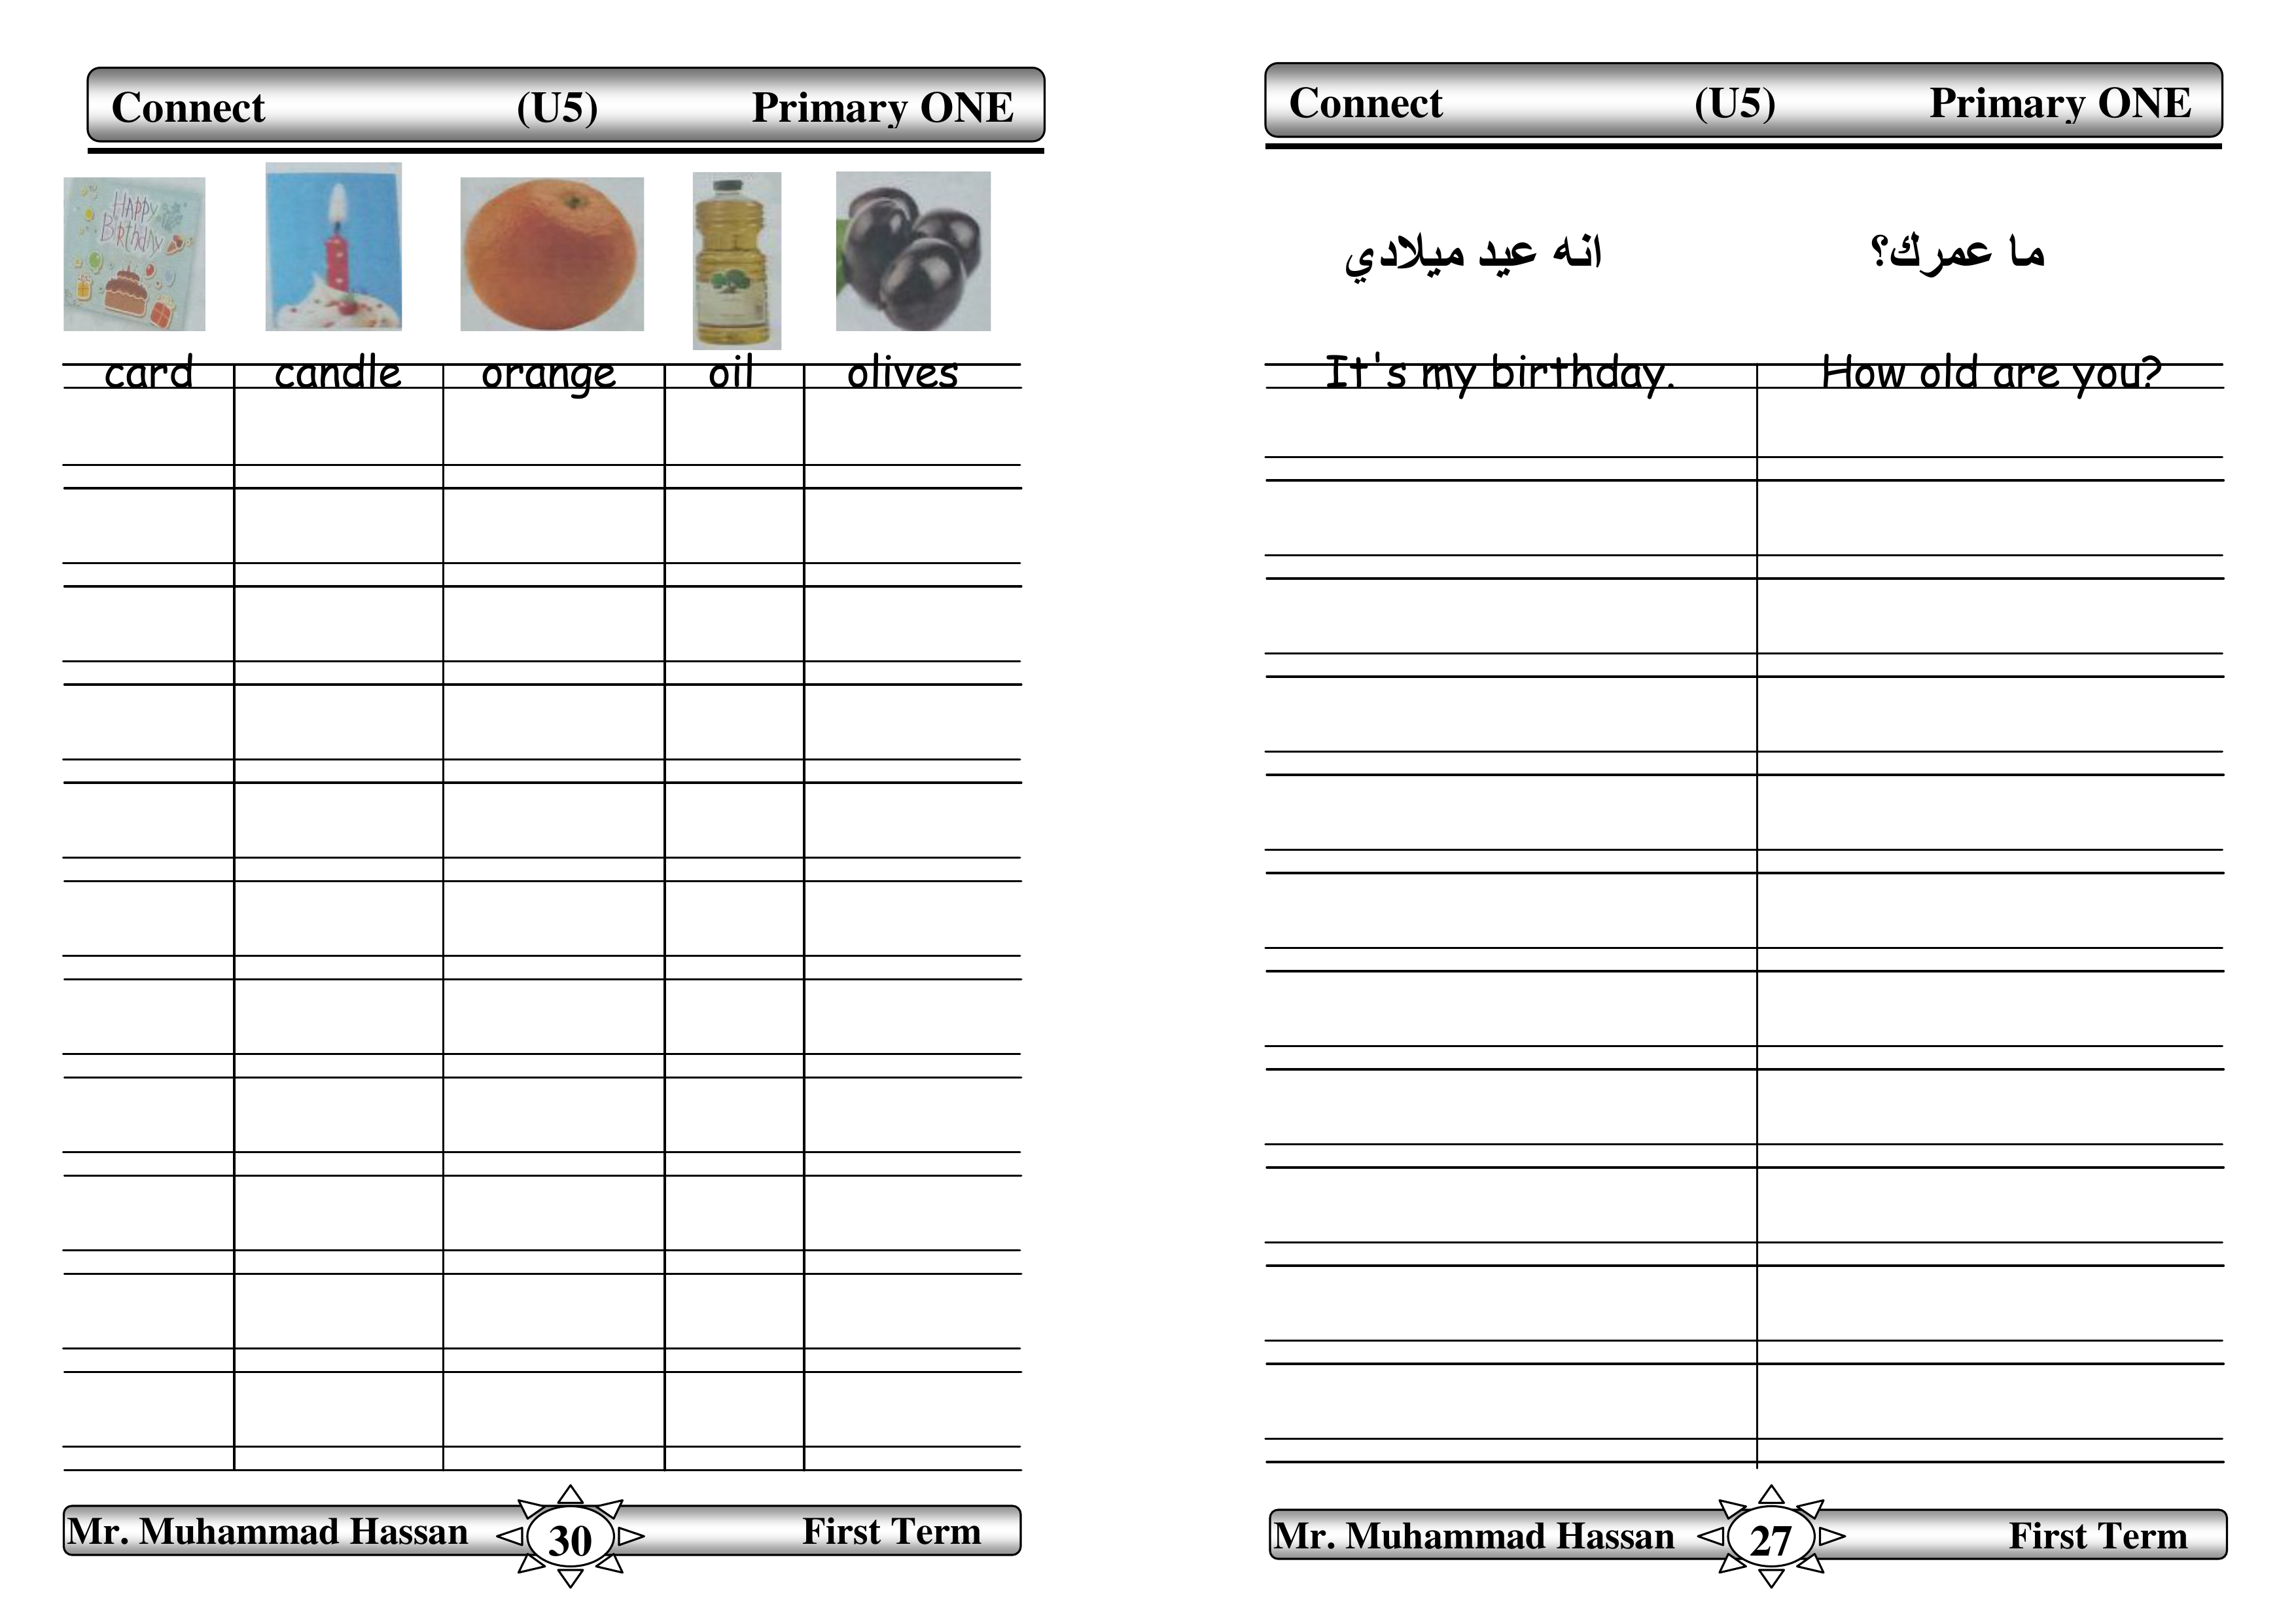 Connect (U5) Primary ONE
HAPPY
BiRthday
card candle orange oil olives
Mr. Muhammad Hassan 30 First Term
Connect (U5) Primary ONE
انه عيد ميلادي ما عمرك؟
It's my birthday. How old are you?
Mr. Muhammad Hassan 27 First Term